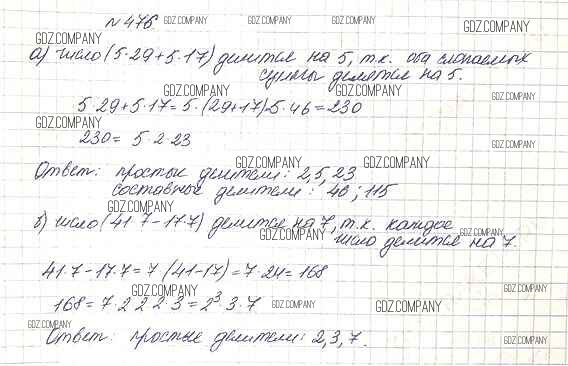 № 476
GDZ.COMPANY GDZ.COMPANY GDZ.COMPANY GDZ.COMPANY
GDZ.COMPANY
а) число (5·29+5·17) делится на 5, т.к. оба слагаемых
GDZ.COMPANY
суммы делятся на 5.
GDZ.COMPANY GDZ.COMPANY GDZ.COMPANY
5·29+5·17=5·(29+17)=5·46=230
GDZ.COMPANY
230= 5·2·23
GDZ.COMPANY
GDZ.COMPANY GDZ.COMPANY
Ответ: простые делители: 2,5,23
составные делители: 46; 115
GDZ.COMPANY
б) число (41·7-17·7) делится на 7, т.к. каждое
GDZ.COMPANY GDZ.COMPANY GDZ.COMPANY
число делится на 7.
41·7-17·7=7(41-17)=7·24=168
GDZ.COMPANY
168=7·2·2·2·3=2³·3·7
GDZ.COMPANY GDZ.COMPANY GDZ.COMPANY
GDZ.COMPANY
Ответ: простые делители: 2,3,7.
GDZ.COMPANY